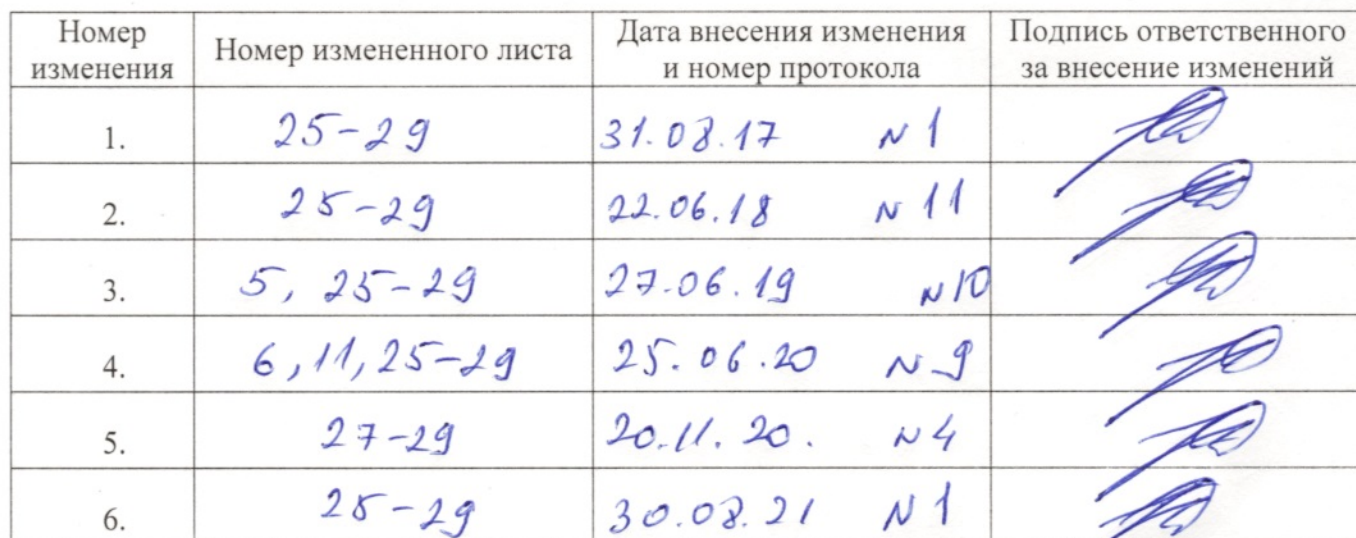 Номер изменения | Номер измененного листа | Дата внесения изменения и номер протокола | Подпись ответственного за внесение изменений
1. | 25-29 | 31.08.17 N 1
2. | 25-29 | 22.06.18 N 11
3. | 5, 25-29 | 27.06.19 N 10
4. | 6, 11, 25-29 | 25.06.20 N 9
5. | 27-29 | 20.11.20. N 4
6. | 25-29 | 30.08.21 N 1